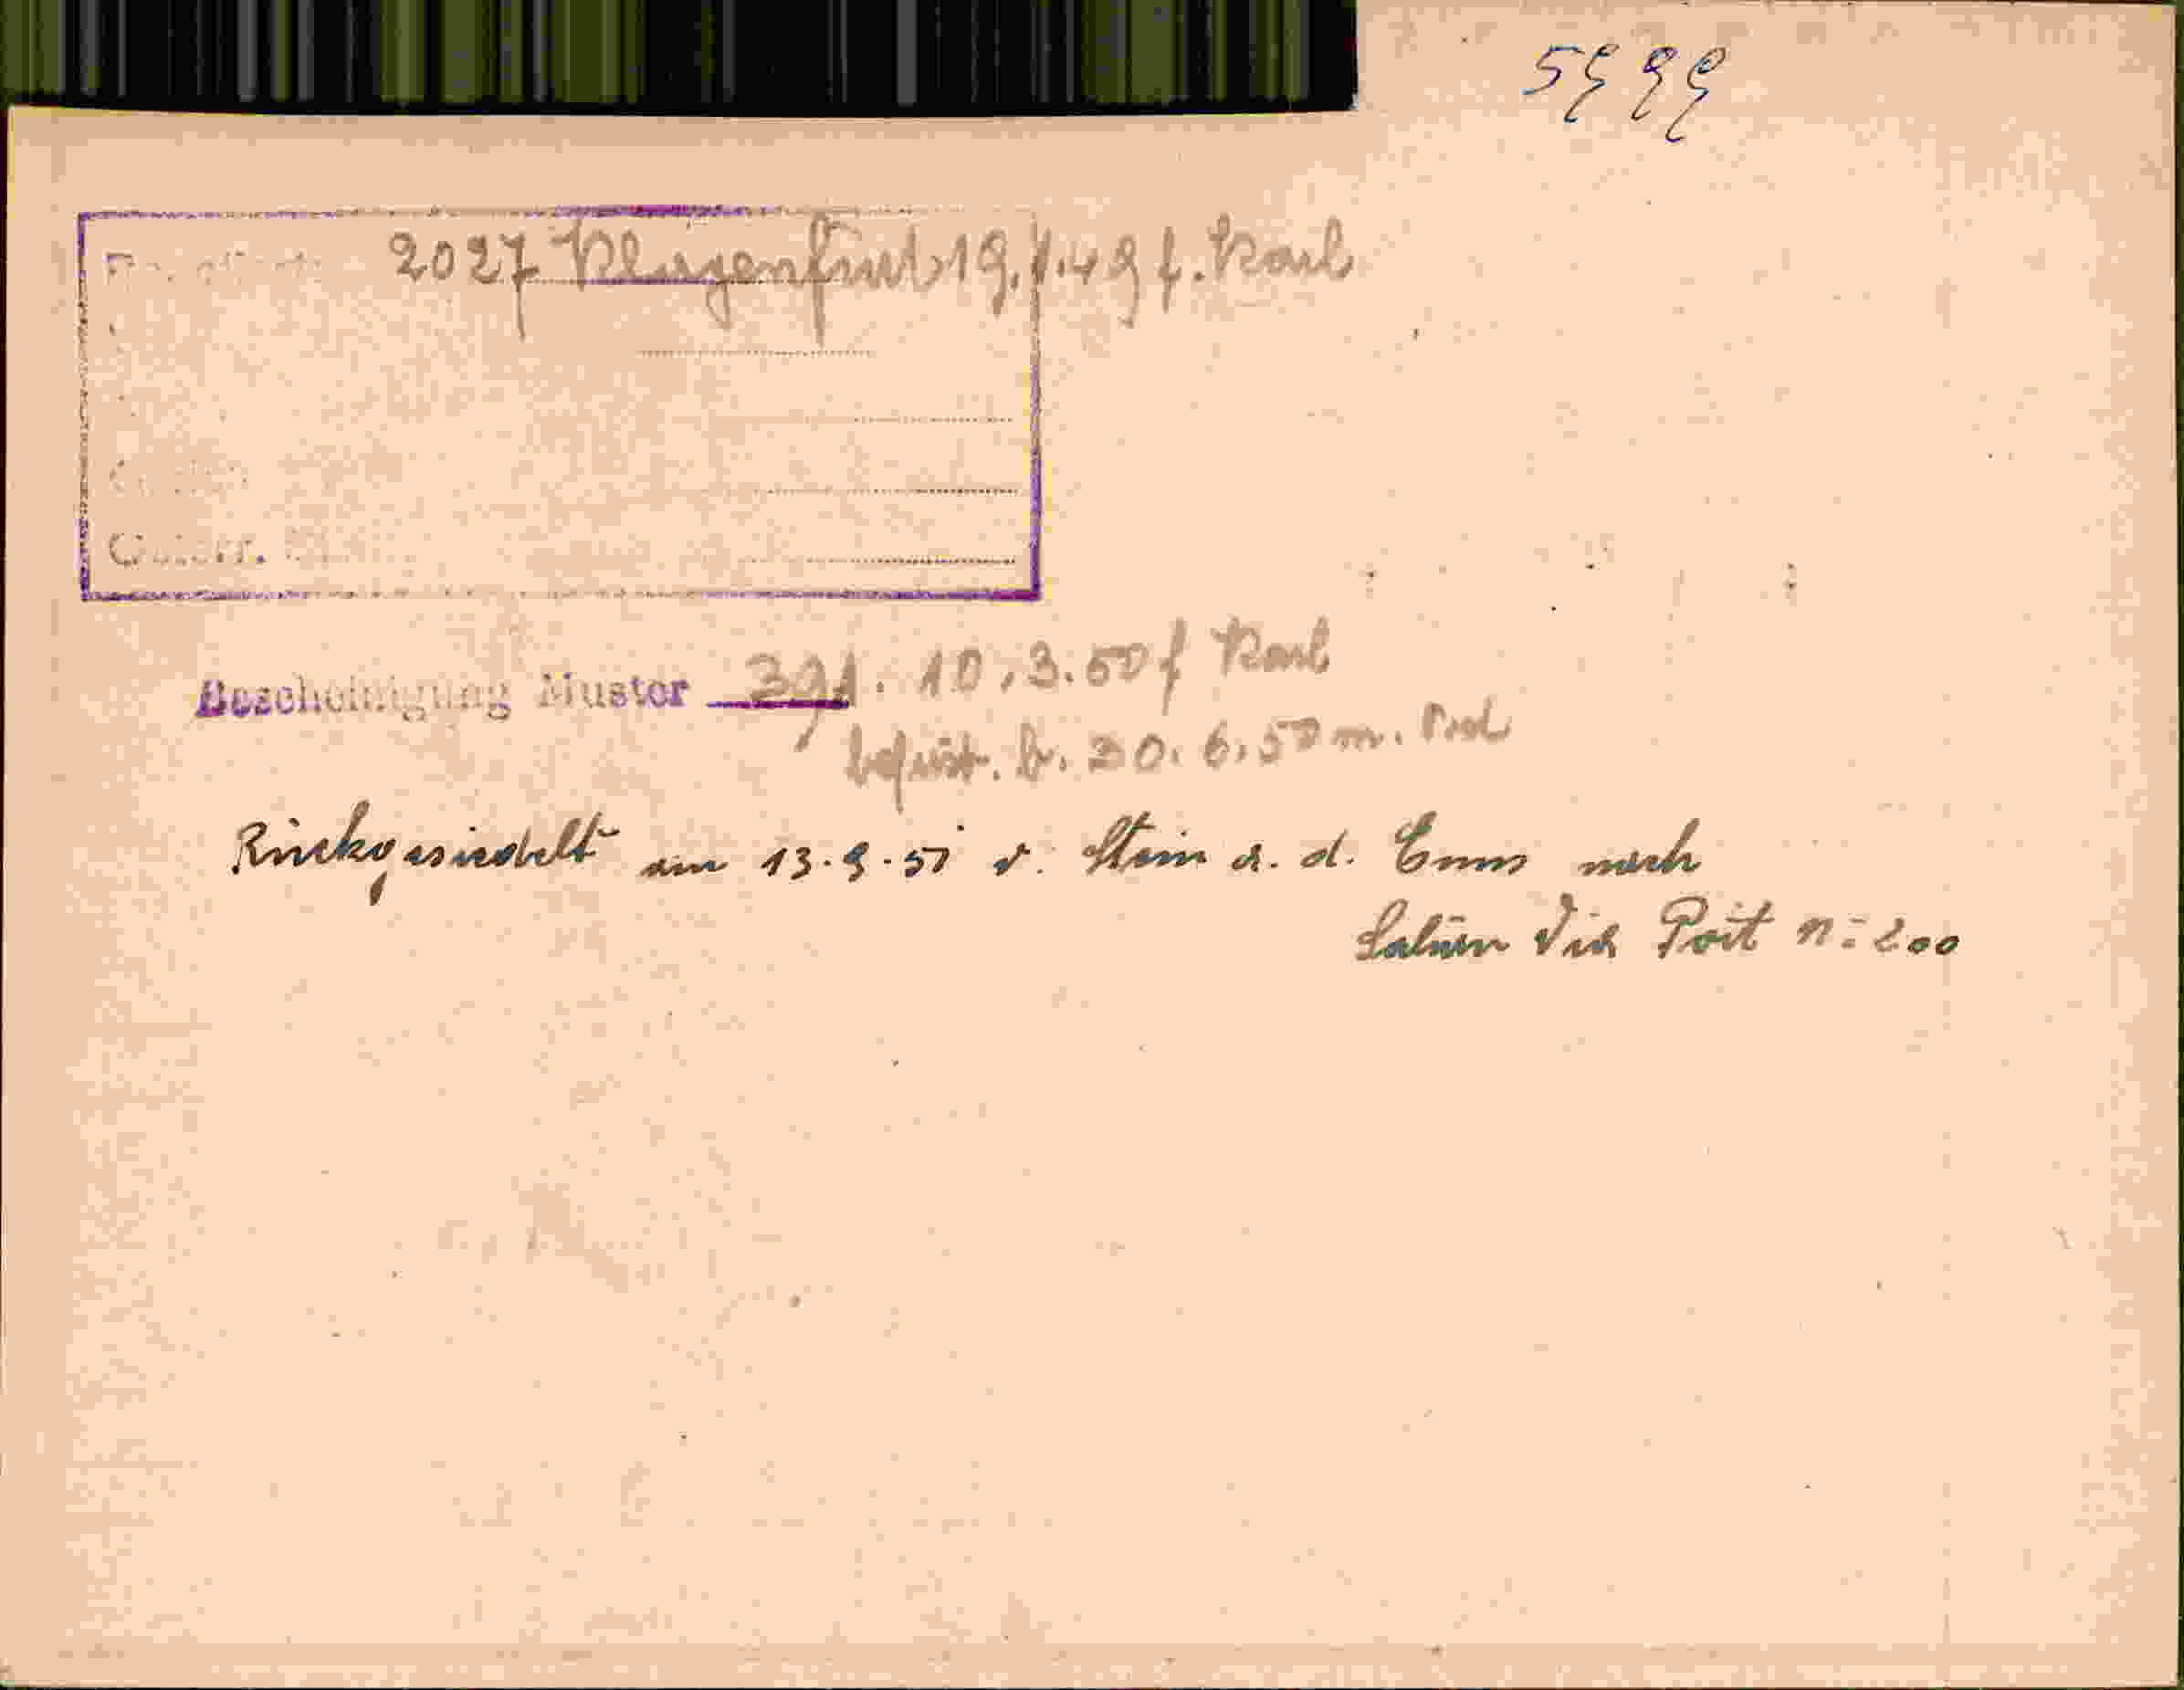 5999
2027 Klagenfurt 19.1.49 f. Karl
Österr.
Bescheinigung Muster 391. 10.3.50 f Karl
b. 30.6.50 m.
Rückgesiedelt am 13.9.51 v. Stein a. d. Enns nach
Via Poit n: 200